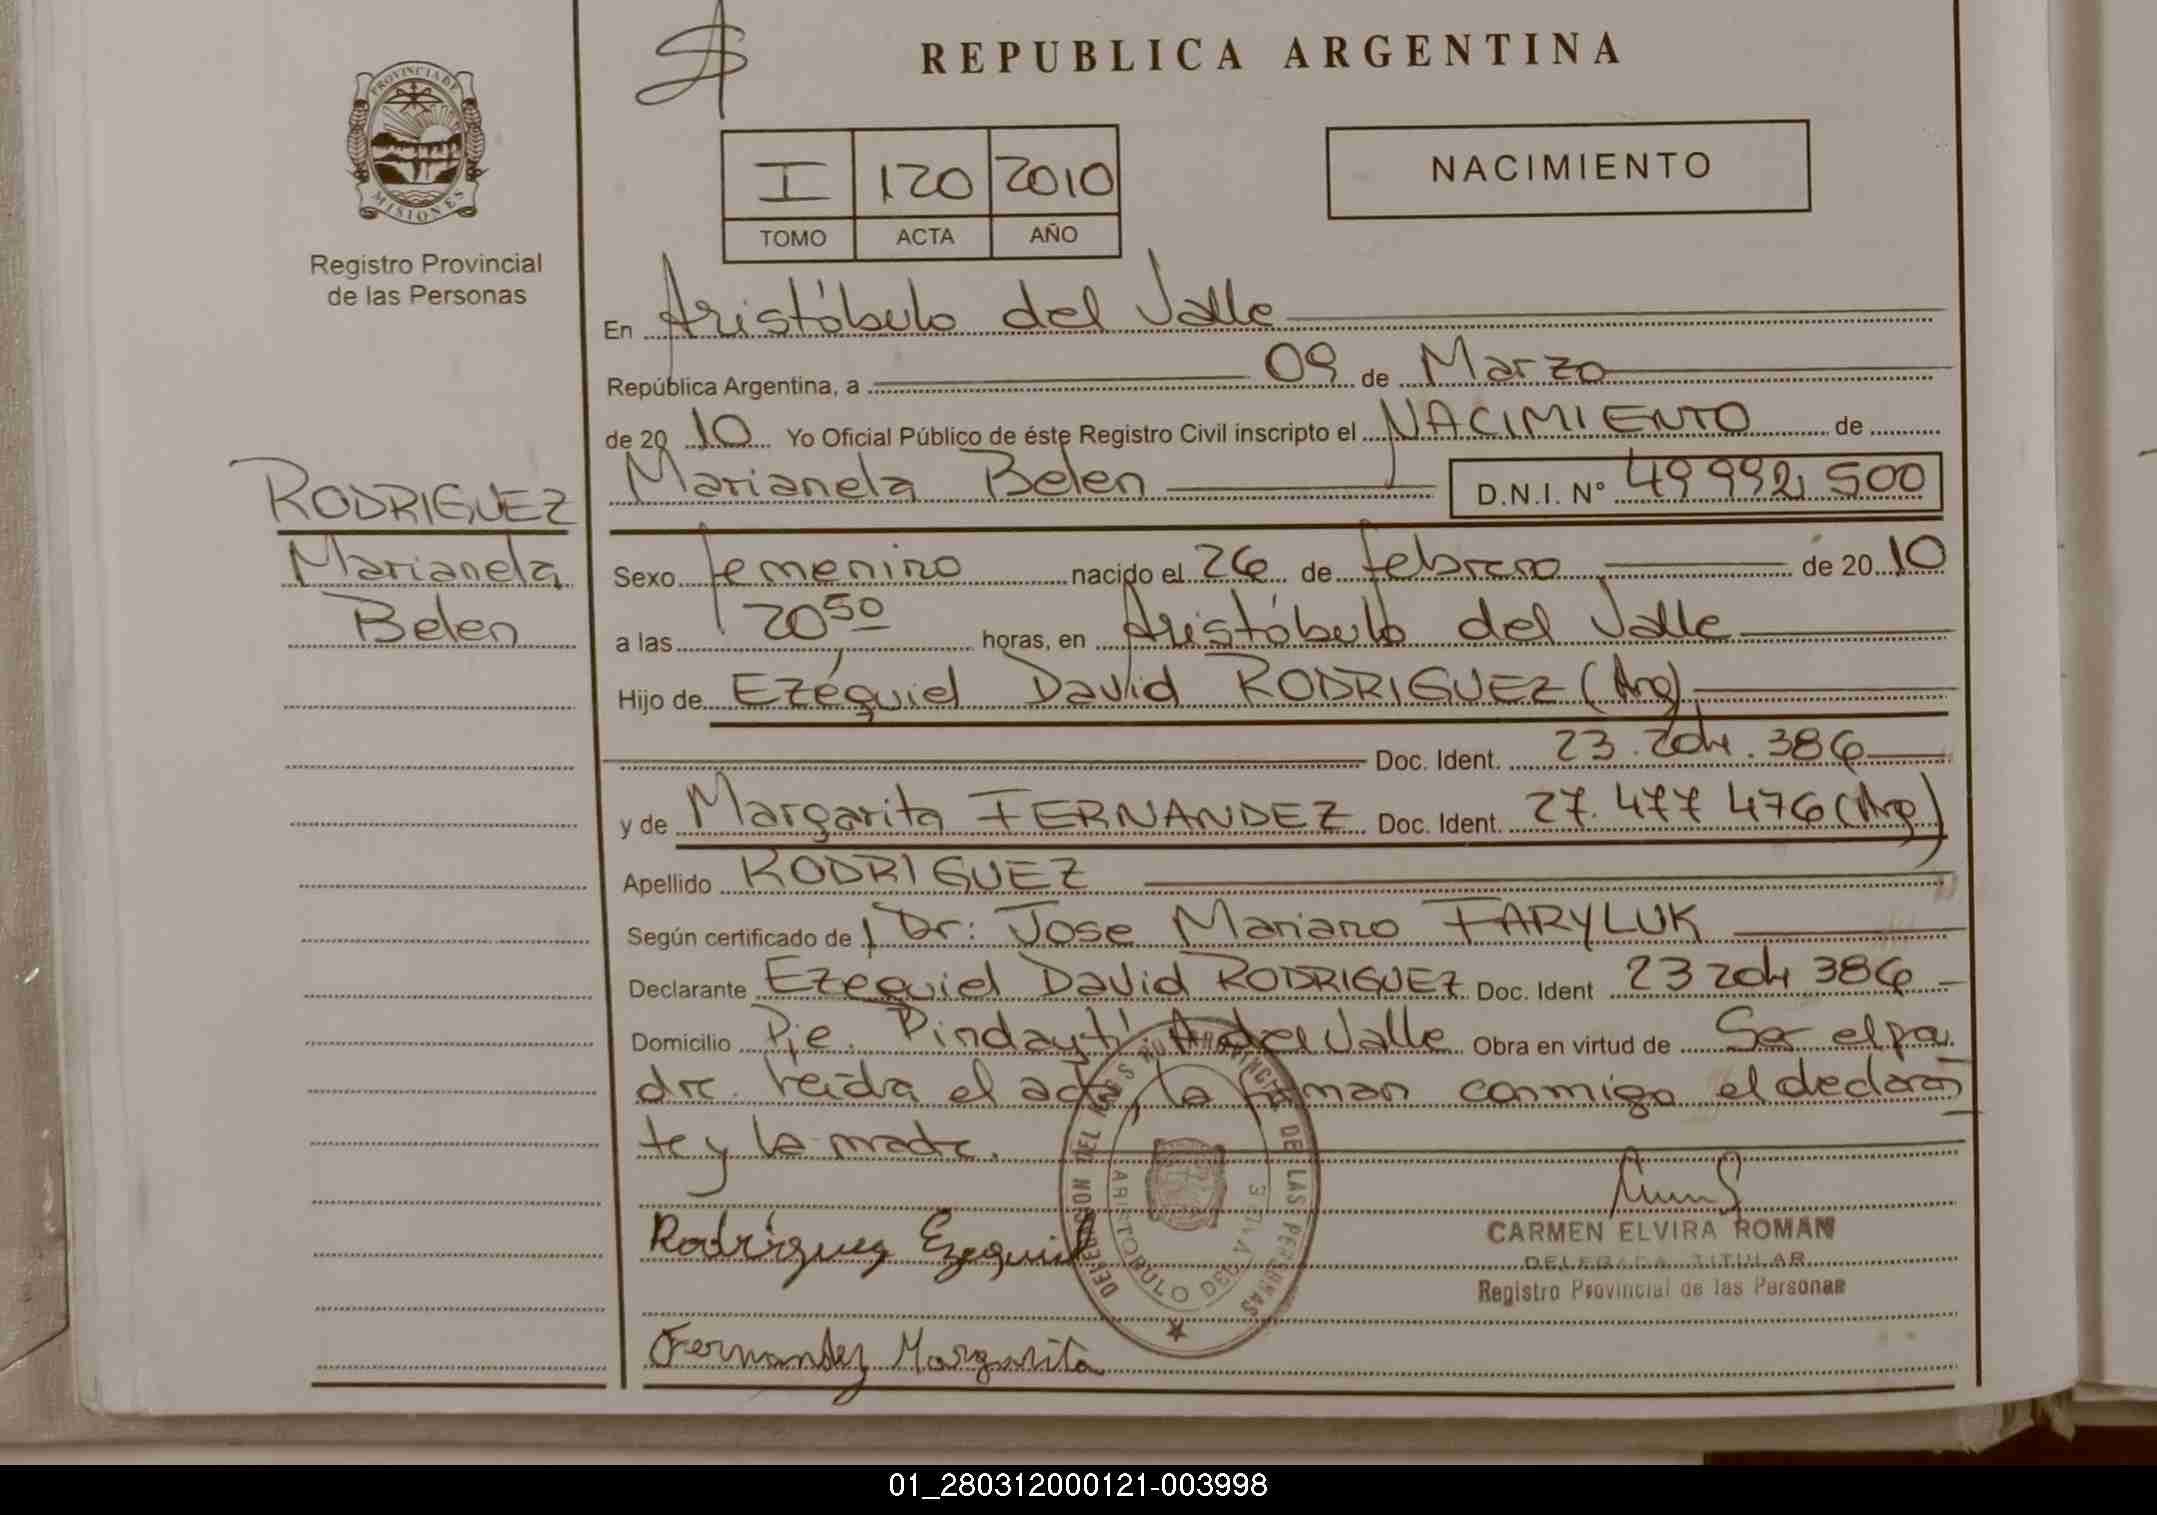 REPUBLICA ARGENTINA
PROVINCIA DE MISIONES
Registro Provincial
de las Personas
I 120 2010
TOMO ACTA AÑO
NACIMIENTO
En Aristóbulo del Valle
República Argentina, a 09 de Marzo
de 2010 Yo Oficial Público de éste Registro Civil inscripto el NACIMIENTO de
Marianela Belen D.N.I. Nº 49 992 500
RODRIGUEZ
Marianela
Belen
Sexo femenino nacido el 26 de febrero de 2010
a las 20 50 horas, en Aristóbulo del Valle
Hijo de Ezéquiel David RODRIGUEZ (Arg)
Doc. Ident. 23.204.386
y de Margarita FERNANDEZ Doc. Ident. 27.477 476 (Arg)
Apellido RODRIGUEZ
Según certificado de Dr: Jose Mariano FARYLUK
Declarante Ezequiel David RODRIGUEZ Doc. Ident 23 204 386
Domicilio Pje. Pindayti A del Valle Obra en virtud de Ser el pa
dre. Leida el acta, la firman conmigo el declaran
te y la madre.
Rodríguez Ezequiel
Fernandez Margarita
CARMEN ELVIRA ROMAN
DELEGADA TITULAR
Registro Provincial de las Personas
DE LAS PERSONAS
ARISTOBULO DEL VALLE
01_280312000121-003998